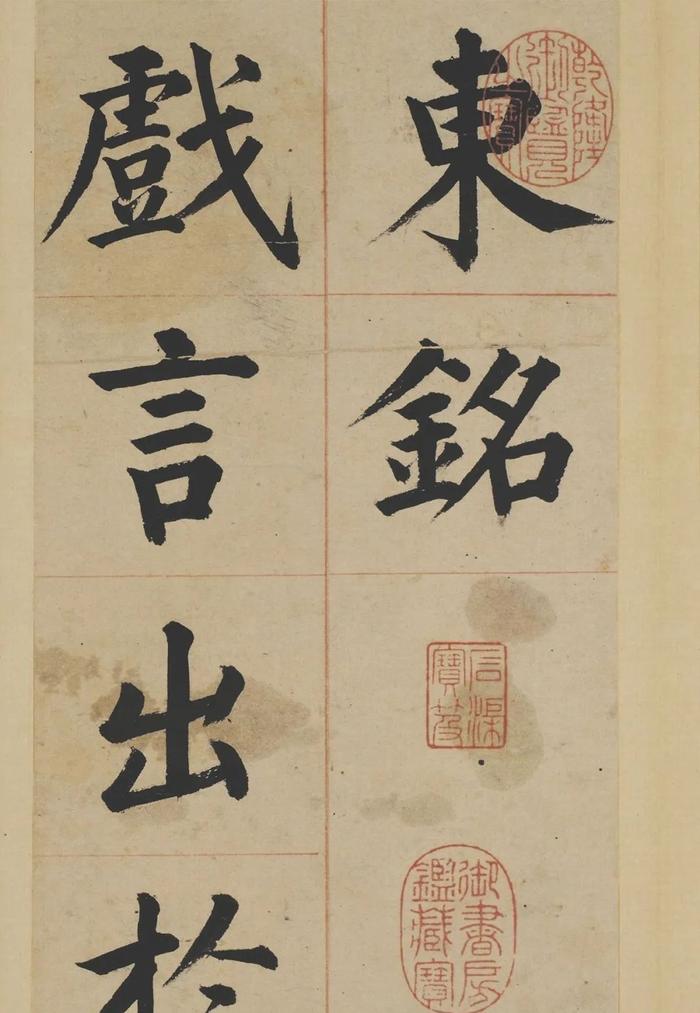 東銘
乾隆御覽之寶
石渠寶笈
御書房鑑藏寶
戲言出於